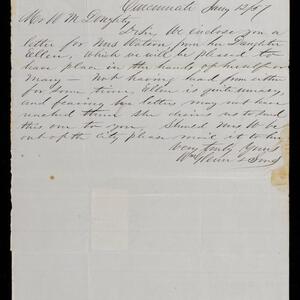 Cincinnati Jany 12/67
Mr W M Doughty
Dr Sir, We enclose you a
letter for Mrs Watson from her Daughter
Ellen, which we will be pleased to
have place in the hands of herself or
Mary – Not having heard from either
for some time, Ellen is quite uneasy,
and fearing her letters may not have
reached them she desires us to send
this one to you, Should Mrs W be
out of the City please mail it to her
Very truly Yours
Wm Glenn & Sons